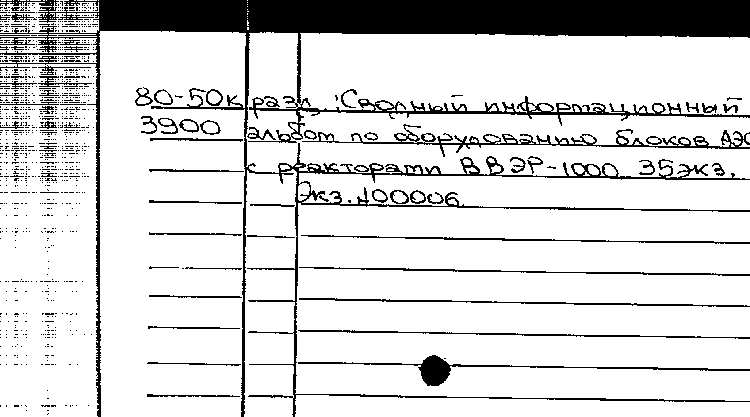 80-50к разд. Сводный информационный
3900 альбом по оборудованию блоков АЭС
с реакторами ВВЭР-1000 35экз.
Экз. №00006